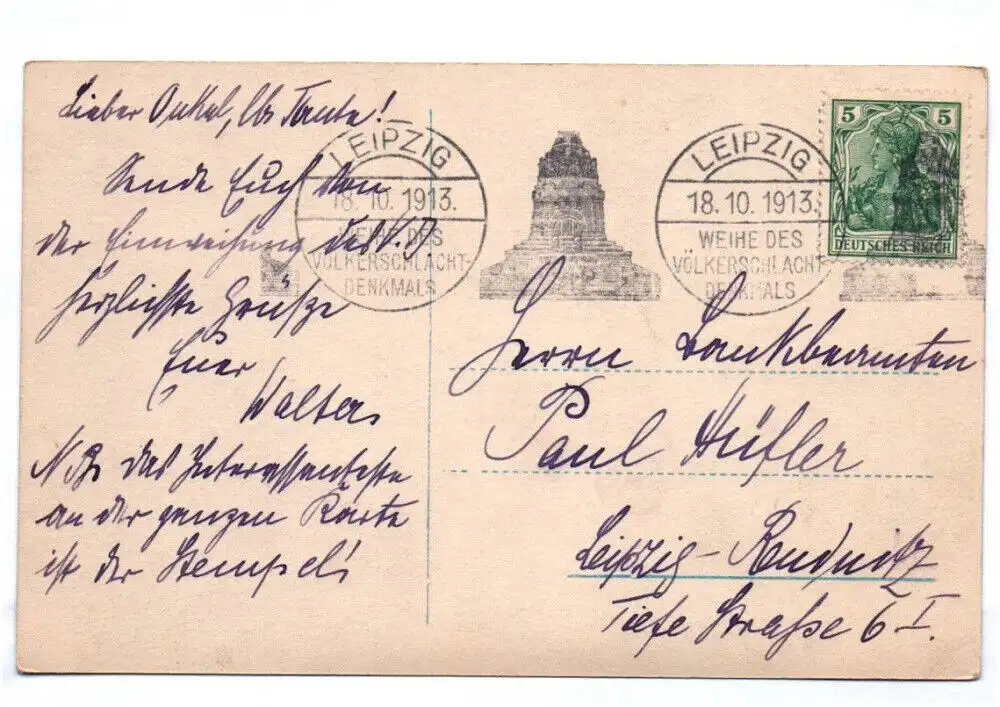 Lieber Onkel, lb. Tante!
Sende Euch von
der Einweihung des V. D.
herzlichste Grüße
Euer
Walter.
NB. das Interessanteste
an der ganzen Karte
ist der Stempel!
LEIPZIG
18.10.1913.
WEIHE DES
VÖLKERSCHLACHT-
DENKMALS
LEIPZIG
18.10.1913.
WEIHE DES
VÖLKERSCHLACHT-
DENKMALS
5 5
DEUTSCHES REICH
Herrn Bankbeamten
Paul Hüfler
Leipzig-Reudnitz
Tiefe Straße 6 I.